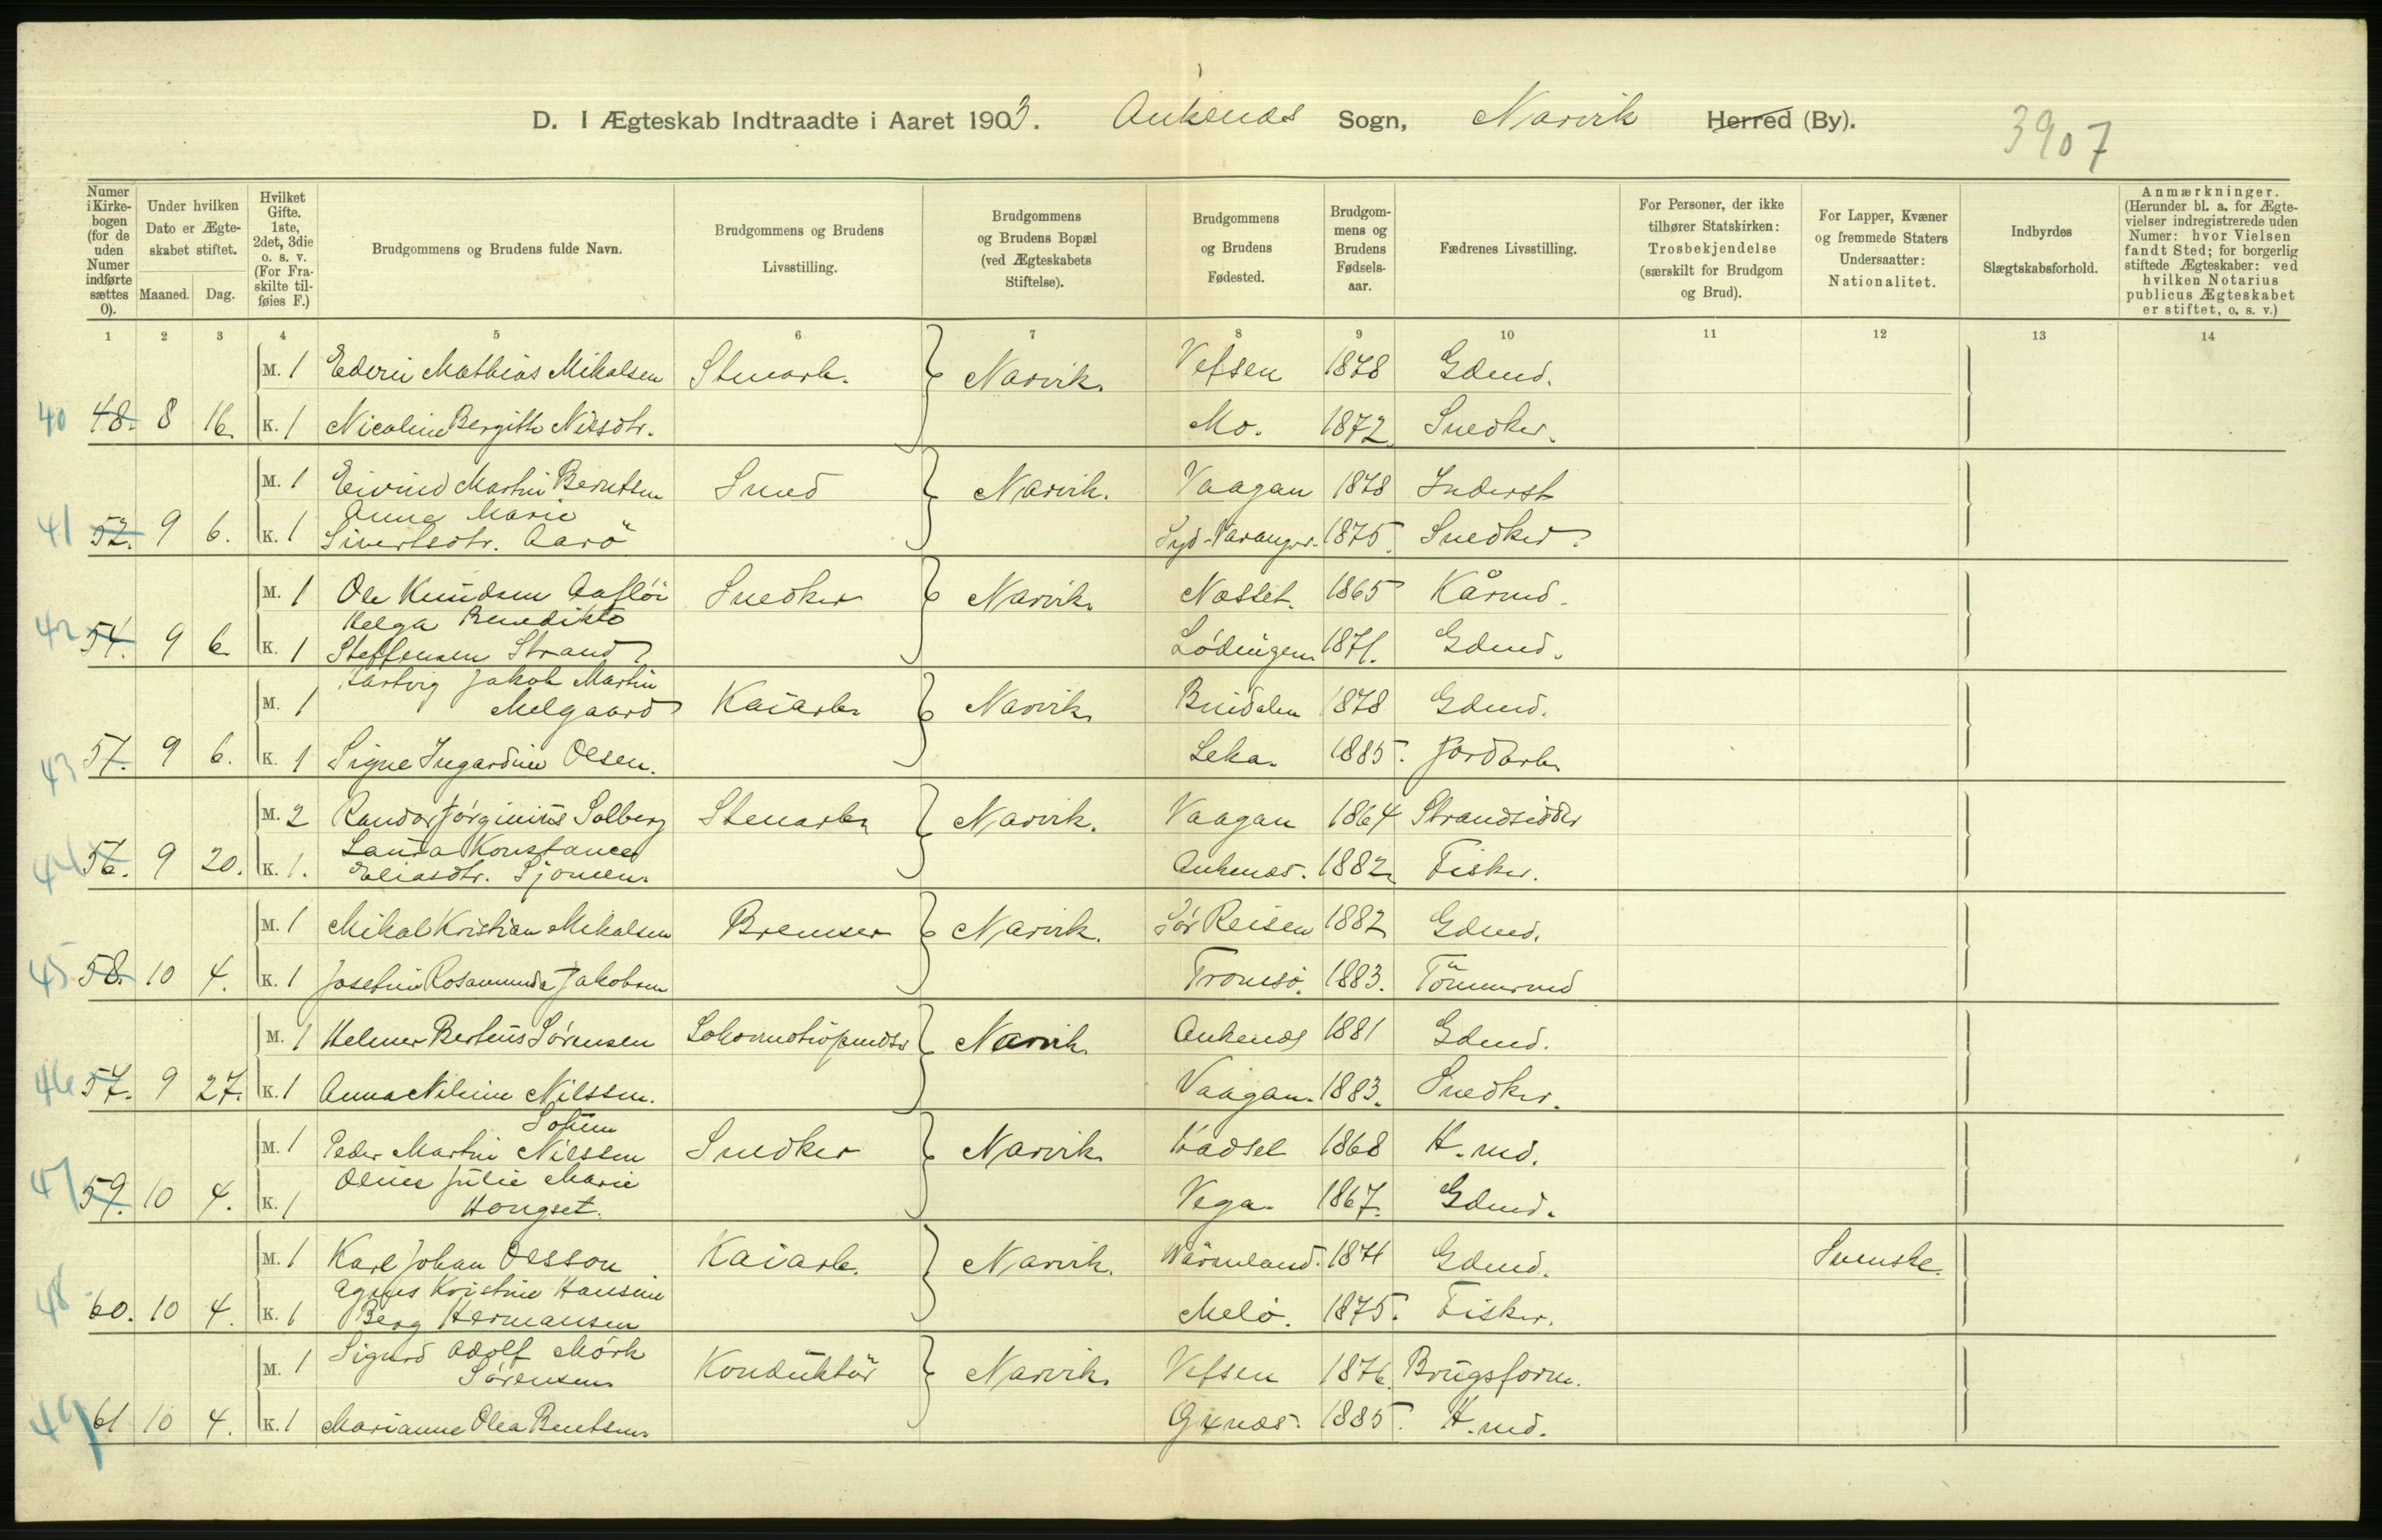 D. I Ægteskab Indtraadte i Aaret 1903. Ankenes Sogn, Narvik Herred (By).
3907
Numer i Kirkebogen (for de uden Numer indførte sættes 0).
Under hvilken Dato er Ægteskabet stiftet.
Maaned. Dag.
Hvilket Gifte. 1ste, 2det, 3die o. s. v. (For Fraskilte tilføies F.)
Brudgommens og Brudens fulde Navn.
Brudgommens og Brudens Livsstilling.
Brudgommens og Brudens Bopæl (ved Ægteskabets Stiftelse).
Brudgommens og Brudens Fødested.
Brudgommens og Brudens Fødselsaar.
Fædrenes Livsstilling.
For Personer, der ikke tilhører Statskirken: Trosbekjendelse (særskilt for Brudgom og Brud).
For Lapper, Kvæner og fremmede Staters Undersaatter: Nationalitet.
Indbyrdes Slægtskabsforhold.
Anmærkninger. (Herunder bl. a. for Ægtevielser indregistrerede uden Numer: hvor Vielsen fandt Sted; for borgerlig stiftede Ægteskaber: ved hvilken Notarius publicus Ægteskabet er stiftet, o. s. v.)
1 2 3 4 5 6 7 8 9 10 11 12 13 14
M. 1 Mathias Mikalsen Stenarb. Narvik. Vefsen 1878 Gdmd.
40 48. 8 16. K. 1 Nicoline Bergitte Nilsdtr. Mo. 1872. Snedker.
M. 1 Eivind Martin Berntsen Smed Narvik. Vaagan 1878 Inderst
Anna Marie
41 52. 9 6. K. 1 Sivertsdtr. Aarö Syd-Varanger. 1875. Snedker.
M. 1 Ole Knudsen Aafløi Snedker Narvik. Nesset. 1865 Kårmd.
Helga Benedikte
42 54. 9 6. K. 1 Steffensen Strand Lødingen 1871. Gdmd.
Jakob Martin
M. 1 Melgaard Kaiarb. Narvik. Bindalen 1878 Gdmd.
43 57. 9 6. K. 1 Signe Ingardine Olsen. Leka. 1885. Jordarb.
M. 2 Randor Jørginius Solberg Stenarb. Narvik. Vaagan 1864 Strandsidder
Laura Konstance
44 56. 9 20. K. 1. Eliasdtr. Sjomen. Ankenes. 1882. Fisker.
M. 1 Mikal Kristian Mikalsen Bremser Narvik. Sør Reisen 1882 Gdmd.
45 58. 10 4. K. 1 Josefine Rosamunda Jakobsen Tromsø. 1883. Tömmermd
M. 1 Helmer Berteus Sørensen Lokomotivpudser Narvik. Ankenes 1881 Gdmd.
46 57. 9 27. K. 1 Anna Nilssen. Vaagan. 1883. Snedker.
M. 1 Peder Martin Nilssen Snedker Narvik Hadsel 1868 H.md.
Oline Julie Marie
47 59. 10 4. K. 1 Hongset. Vega. 1867. Gdmd.
M. 1 Karl Johan Olsson Kaiarb. Narvik. Wärmland. 1871 Gdmd. Svenske.
Agnes Kristine Hansine
48 60. 10 4. K. 1 Berg Hermansen Melø. 1875. Fisker.
Sigurd Adolf Mörk
M. 1 Sørensen Konduktör Narvik. Vefsen 1876. Brugsform.
49 61 10 4. K. 1 Marianne Olea Bentsen. 1885. H.md.